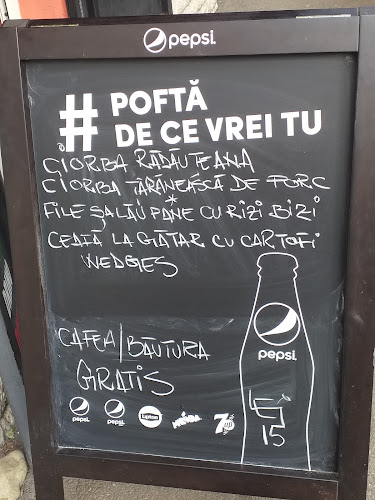 pepsi.
# POFTĂ
DE CE VREI TU
CIORBA RĂDĂUTEANA
CIORBA TĂRĂNEASCĂ DE PORC
FILE ȘALĂU PANE CU RIZI BIZI
CEAFĂ LA GRĂTAR CU CARTOFI
WEDGES
pepsi.
CAFEA/BĂUTURA
GRATIS
LEI
15
pepsi pepsi Lipton MIRINDA 7up